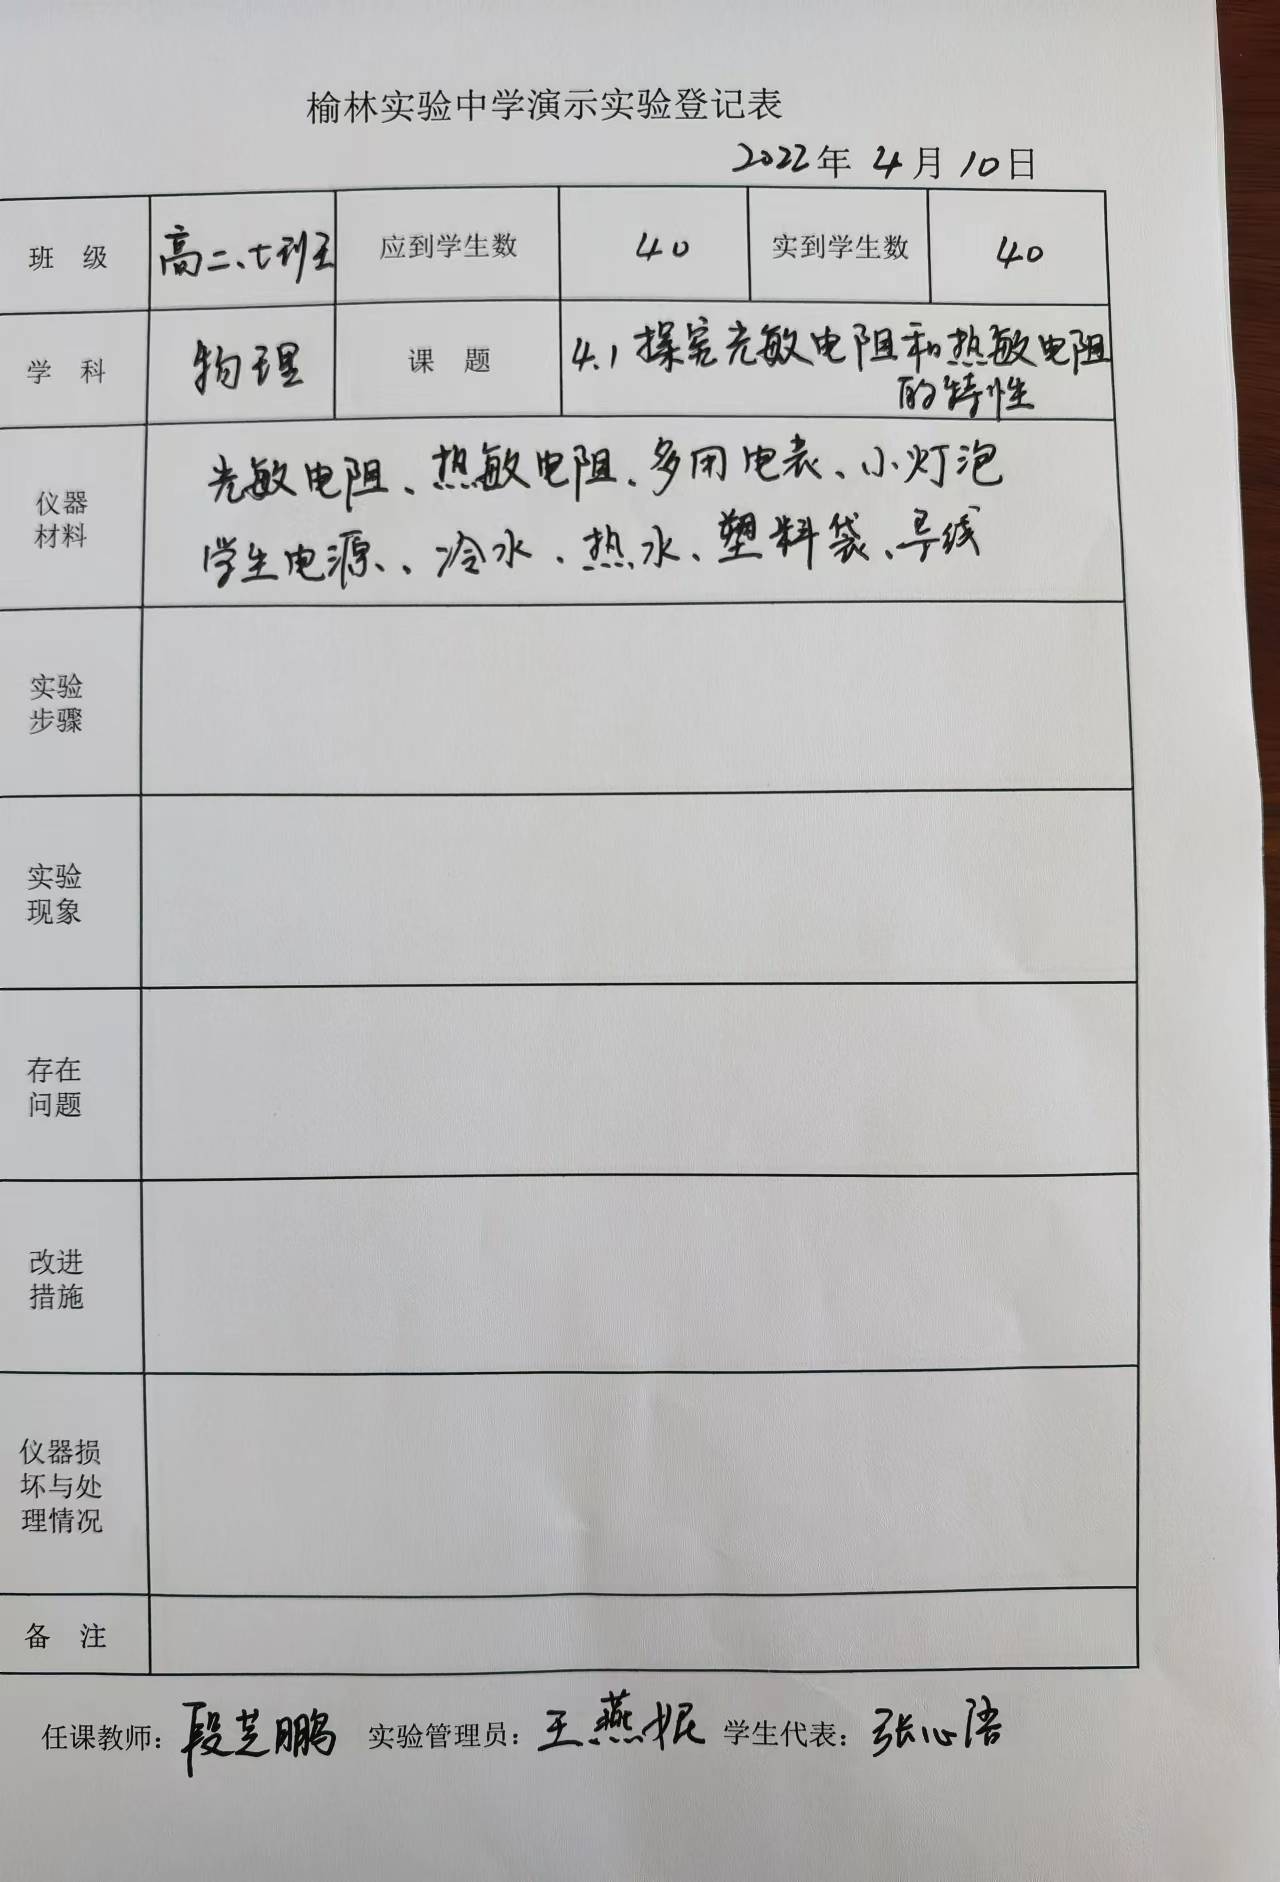 榆林实验中学演示实验登记表
2022年 4月 10日
班 级 高二、七班 应到学生数 40 实到学生数 40
学 科 物理 课 题 4.1 探究光敏电阻和热敏电阻
的特性
仪器
材料
光敏电阻、热敏电阻、多用电表、小灯泡
学生电源、、冷水、热水、塑料袋、导线
实验
步骤
实验
现象
存在
问题
改进
措施
仪器损
坏与处
理情况
备 注
任课教师：段芝鹏 实验管理员：王燕 学生代表：张心语